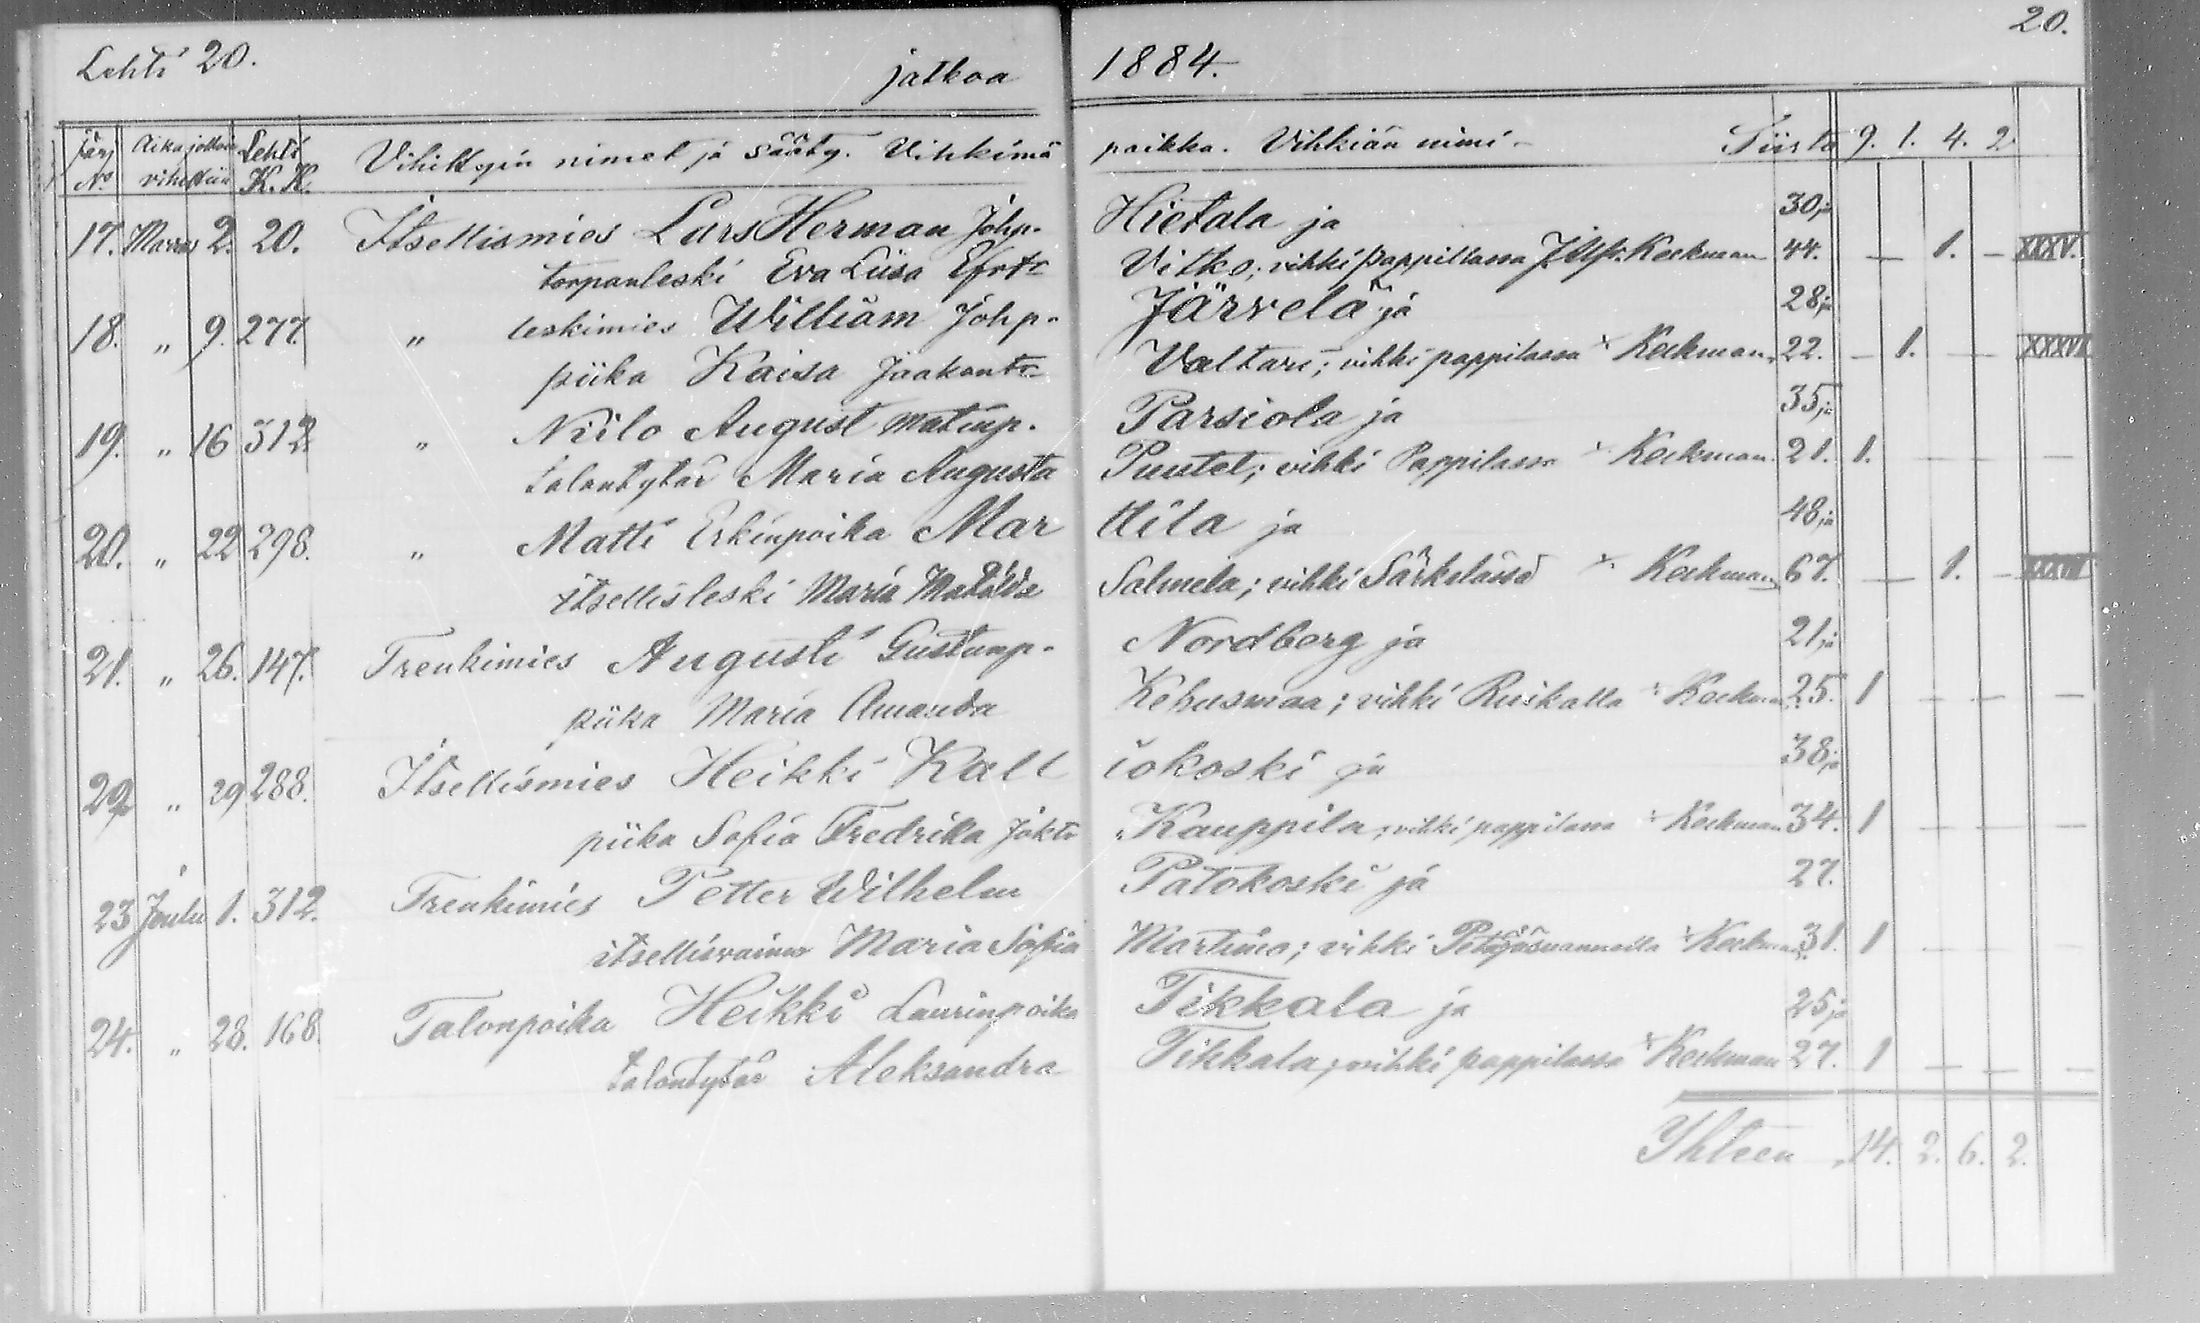 Lehti 20. jatkoa 1884. 20.
Järj Nº Aika jolloin vihittiin Lehti K.K. Vihittyin nimet ja sääty. Vihkimä paikka. Vihkiän nimi Siirto 9. 1. 4. 2
17. Marras 2. 20. Itsellismies Lars Herman Johp. Hietala ja 30, ja
torpanleski Eva Liisa Vitko; vihki pappillassa Keckman 44. — 1. — XXXV.
18. „ 9. 277. „ leskimies William Johp. Järvelä ja 28, ja
piika Kaisa Jaakontr Valtari; vihki pappilassa Keckman 22. — 1. — XXXVI
19. „ 16 312. „ Niilo August Matinp. Parsiola ja 35, ja
talontytär Maria Augusta vihki Pappilassa Keckman 21. 1. — — —
20. „ 22 298. „ Matti Erkinpoika Mar ttila ja 48, ja
itsellisleski Maria Matilda Salmela; vihki Särkelässä Keckman 67. — 1. —
21. „ 26. 147. Trenkimies Augusti Gustanp. Nordberg ja 21, ja
piika Maria Amanda Kehusmaa; vihki Ruikalla Keckman 25. 1 — — —
22 „ 29 288. Itsellismies Heikki Kall iokoski ja 38, ja
piika Sofia Fredrika Jaktr Kauppila; vihki pappilassa Keckman 34. 1 — — —
23 Joulu 1. 312. Trenkimies Petter Wilhelm Patokoski ja 27.
Maria Sofia Martimo; vihki Keckman 31. 1 — — —
24. „ 28. 168. Talonpoika Heikki Laurinpoika Tikkala ja 25, ja
talontytär Aleksandra Tikkala; vihki pappilassa Keckman 27. 1 — — —
Yhteen 14. 2. 6. 2.